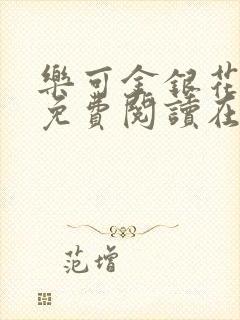 樂可金銀花
免費閱讀在
范增